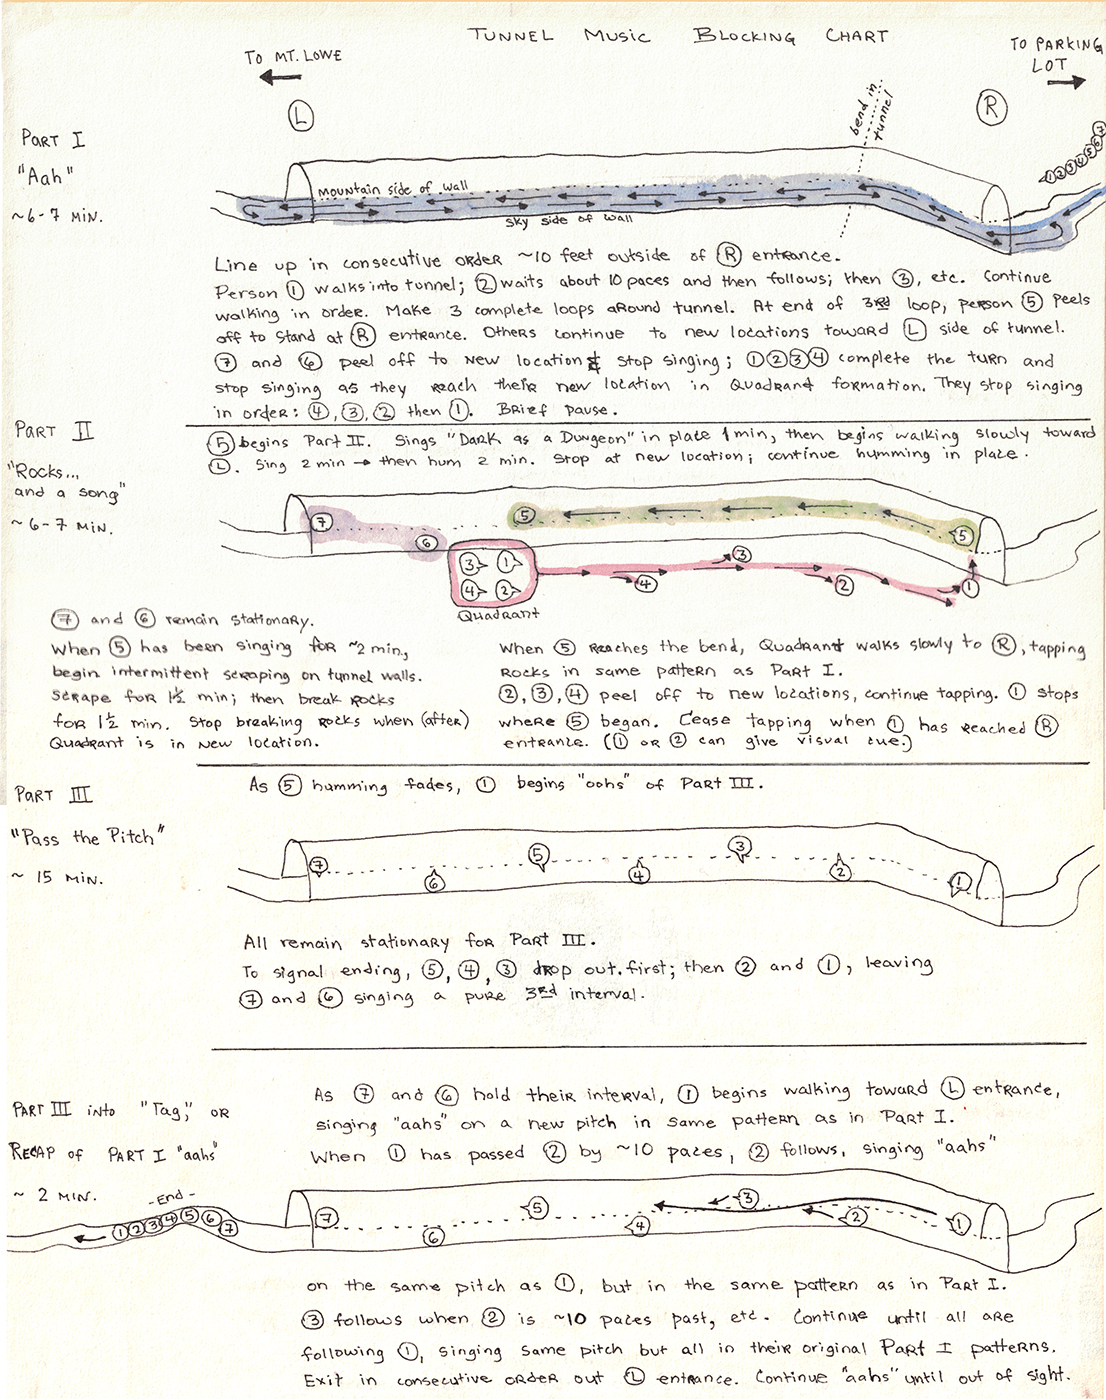 TUNNEL MUSIC BLOCKING CHART
TO MT. LOWE
TO PARKING LOT
L
R
bend in tunnel
PART I
"Aah"
~6-7 MIN.
1 2 3 4 5 6 7
mountain side of wall
sky side of wall
Line up in consecutive order ~10 feet outside of R entrance.
Person 1 walks into tunnel; 2 waits about 10 paces and then follows; then 3, etc. Continue
walking in order. Make 3 complete loops around tunnel. At end of 3rd loop, person 5 peels
off to stand at R entrance. Others continue to new locations toward L side of tunnel.
7 and 6 peel off to new location & stop singing; 1 2 3 4 complete the turn and
stop singing as they reach their new location in Quadrant formation. They stop singing
in order: 4, 3, 2 then 1. Brief pause.
PART II
"Rocks...
and a song"
~6-7 MIN.
5 begins Part II. Sings "Dark as a Dungeon" in place 1 min, then begins walking slowly toward
L. Sing 2 min → then hum 2 min. Stop at new location; continue humming in place.
7
6
5
5
3 1
4 2
Quadrant
4
3
2
1
7 and 6 remain stationary.
When 5 has been singing for ~2 min,
begin intermittent scraping on tunnel walls.
Scrape for 1½ min; then break rocks
for 1½ min. Stop breaking rocks when (after)
Quadrant is in new location.
When 5 reaches the bend, Quadrant walks slowly to R, tapping
rocks in same pattern as Part I.
2, 3, 4 peel off to new locations, continue tapping. 1 stops
where 5 began. Cease tapping when 1 has reached R
entrance. (1 or 2 can give visual cue.)
PART III
"Pass the Pitch"
~ 15 MIN.
As 5 humming fades, 1 begins "oohs" of Part III.
7
6
5
4
3
2
1
All remain stationary for Part III.
To signal ending, 5, 4, 3 drop out first; then 2 and 1, leaving
7 and 6 singing a pure 3rd interval.
PART III into "Tag," or
RECAP of PART I "aahs"
~ 2 MIN.
As 7 and 6 hold their interval, 1 begins walking toward L entrance,
singing "aahs" on a new pitch in same pattern as in Part I.
When 1 has passed 2 by ~10 paces, 2 follows, singing "aahs"
-End-
1 2 3 4 5 6 7
7
6
5
4
3
2
1
on the same pitch as 1, but in the same pattern as in Part I.
3 follows when 2 is ~10 paces past, etc. Continue until all are
following 1, singing same pitch but all in their original Part I patterns.
Exit in consecutive order out L entrance. Continue "aahs" until out of sight.